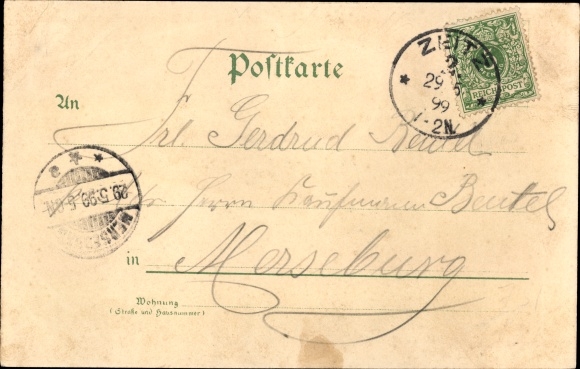 ZEITZ
29 5
99
1-2N.
REICHSPOST
Postkarte
An
Frl. Gerdrud Beutel
Herrn Kaufmann Beutel
29.5.99
in Merseburg
Wohnung
(Straße und Hausnummer)